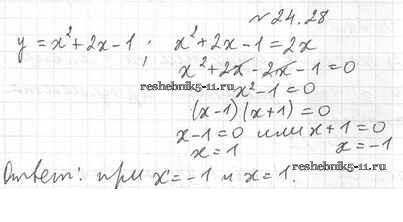 №24.28
y = x² + 2x - 1 ; x² + 2x - 1 = 2x
x² + 2x - 2x - 1 = 0
reshebnik5-11.ru
x² - 1 = 0
(x-1)(x+1) = 0
x-1=0 или x+1=0
x=1 x=-1
reshebnik5-11.ru
Ответ: при x=-1 и x=1.